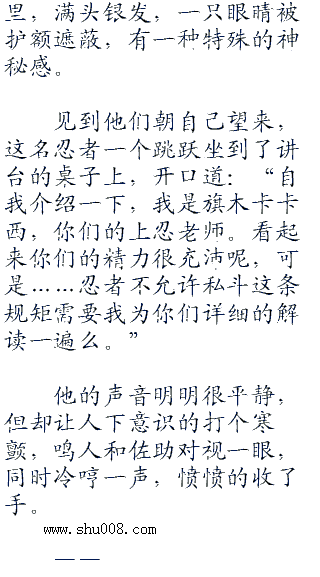 里，满头银发，一只眼睛被
护额遮蔽，有一种特殊的神
秘感。
见到他们朝自己望来，
这名忍者一个跳跃坐到了讲
台的桌子上，开口道：“自
我介绍一下，我是旗木卡卡
西，你们的上忍老师。看起
来你们的精力很充沛呢，可
是……忍者不允许私斗这条
规矩需要我为你们详细的解
读一遍么。”
他的声音明明很平静，
但却让人下意识的打个寒
颤，鸣人和佐助对视一眼，
同时冷哼一声，愤愤的收了
手。
www.shu008.com
——